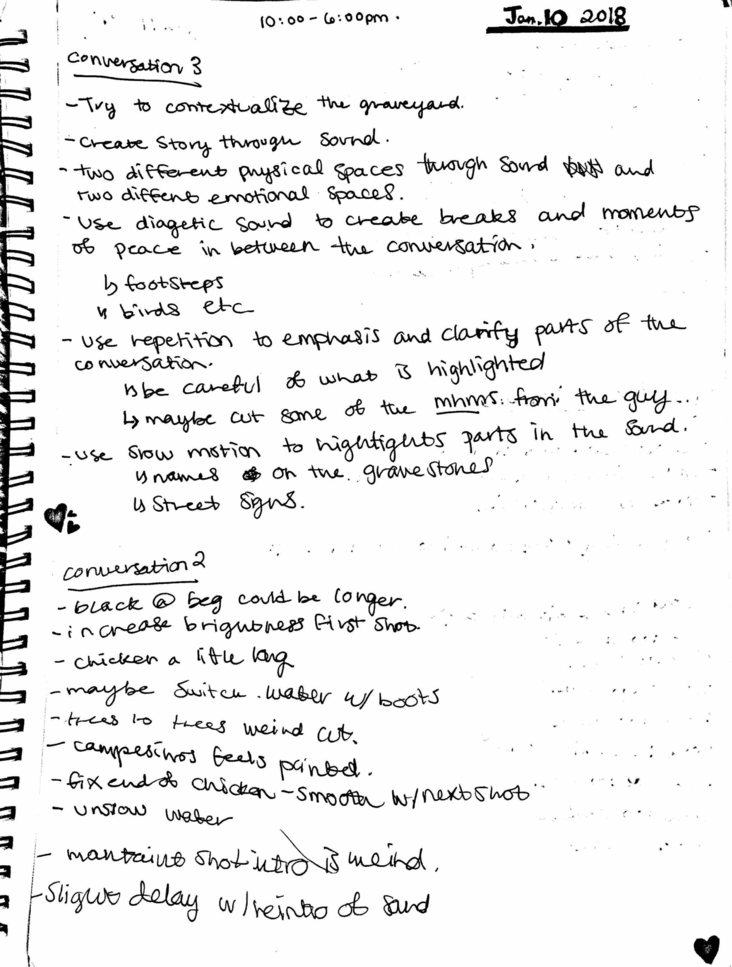 10:00 - 6:00pm.
Jan. 10 2018
Conversation 3
- Try to contextualize the graveyard.
- Create Story through Sound.
- two different physical spaces through sound and
two diffent emotional spaces.
- Use diagetic sound to create breaks and moments
of peace in between the conversation.
↳ footsteps
↳ birds etc
- Use repetition to emphasis and clarify parts of the
conversation.
↳ be careful of what is highlighted
↳ maybe cut some of the mhms from the guy...
- Use slow motion to hightights parts in the sound.
↳ names on the gravestones
↳ Street signs.
Conversation 2
- black @ beg could be longer.
- increase brightness first shot.
- chicken a little long
- maybe switch water w/ boots
- trees to trees weird cut.
- campesinos feels painted.
- fix end of chicken - smooth w/ next shot
- unslow water
- shot intro is weird.
- Slight delay w/ reintro of sound